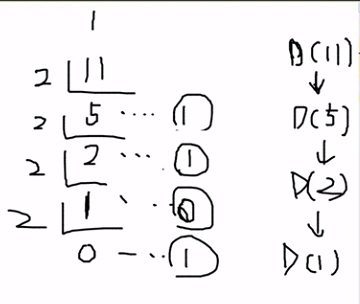 1
2 11
2 5 ···· 1
2 2 ··· 1
2 1 ··· 0
0 -··· 1
D(11)
↓
D(5)
↓
D(2)
↓
D(1)